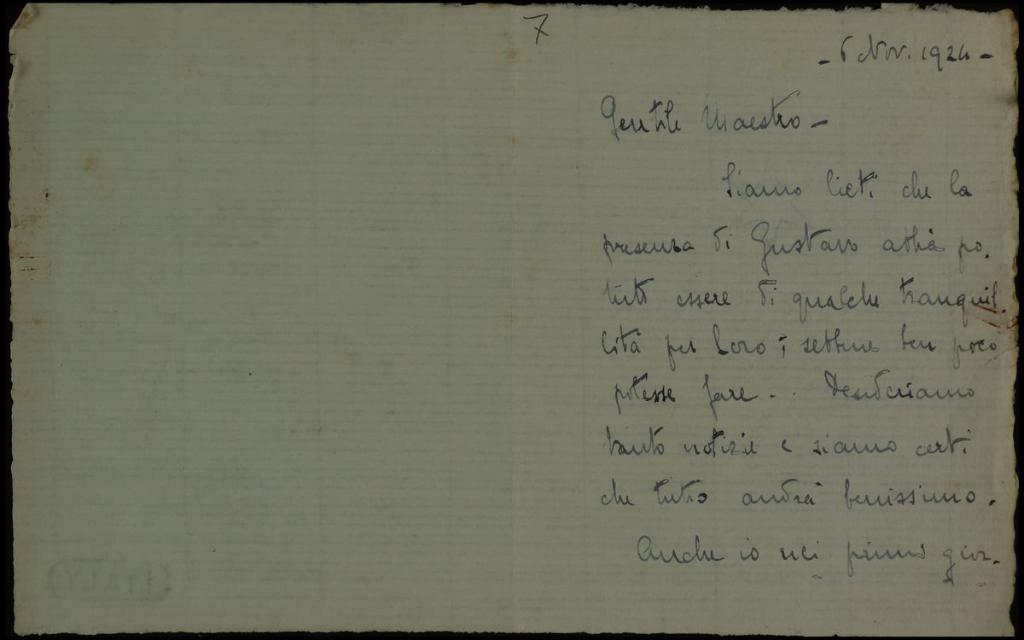 7
- 6 Nov. 1924 -
Gentile Maestro -
Siamo lieti che la
presenza di Gustavo abbia po-
tuto essere di qualche tranquil-
lità per loro; sebbene ben poco
potesse fare... Desideriamo
tanto notizie e siamo certi
che tutto andrà benissimo.
Anche io nei primi gior-
(ITALY)